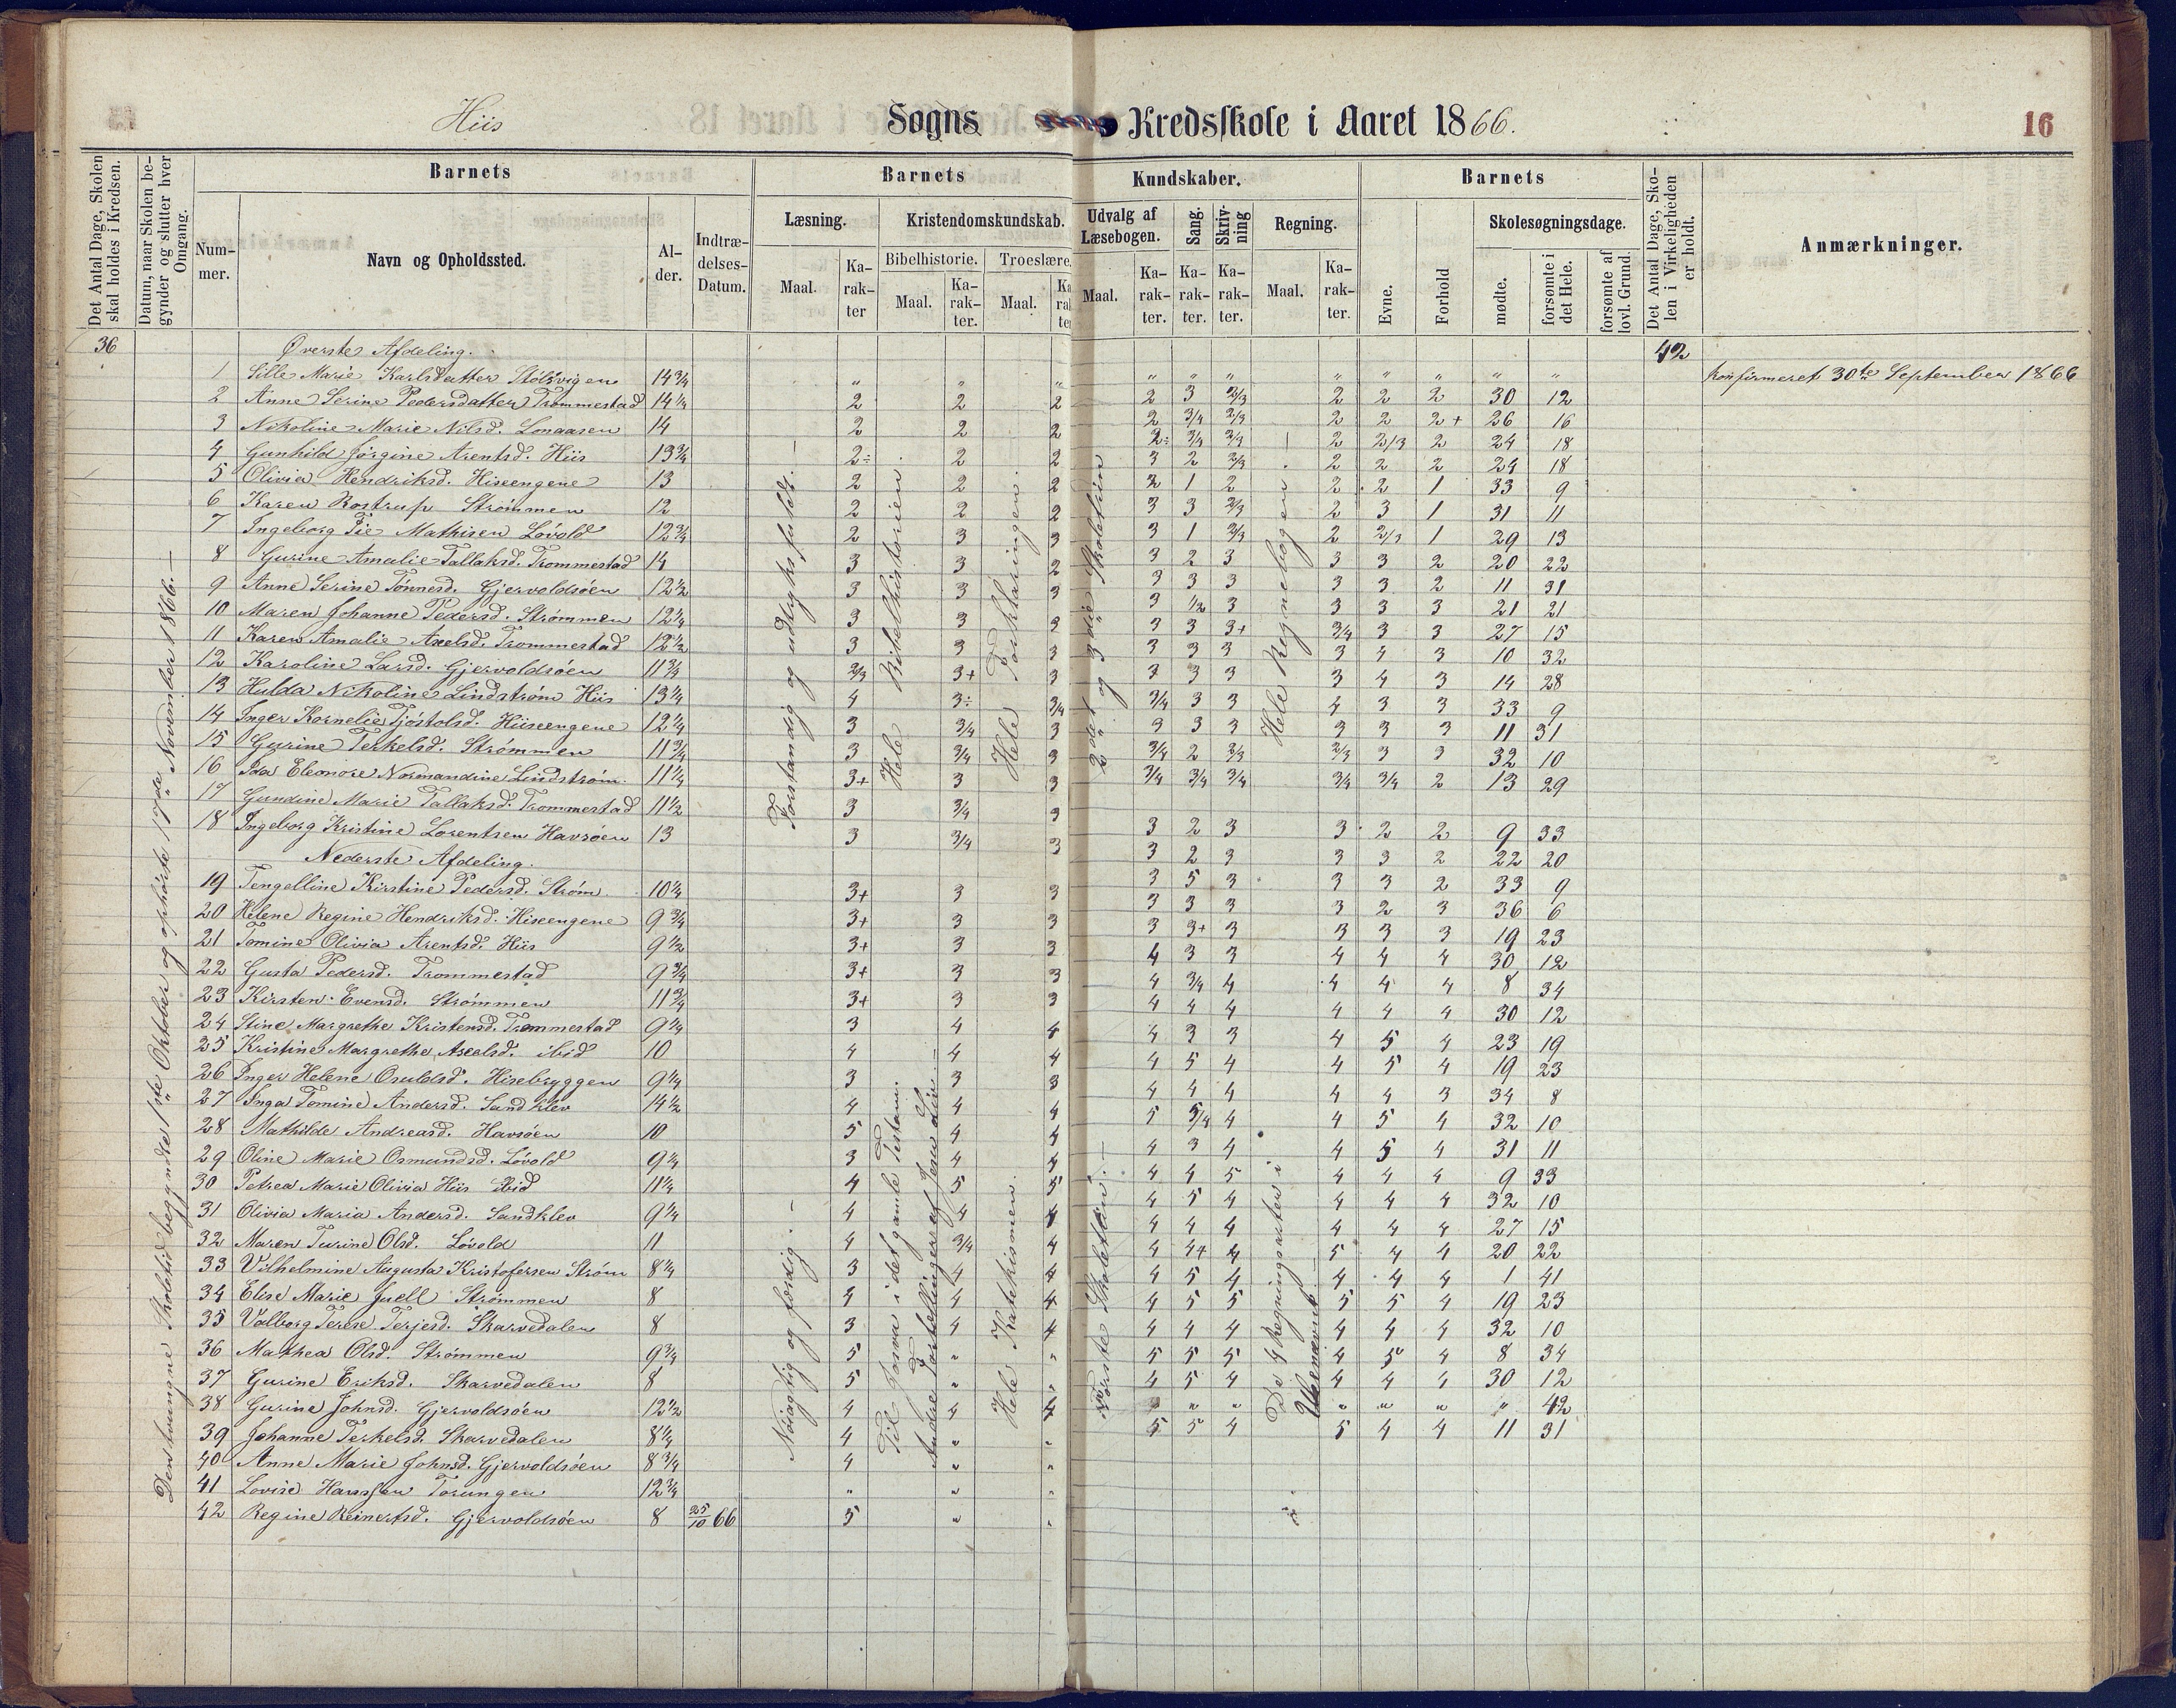 Hiis Sogns Kredsskole i Aaret 1866. 16
Det Antal Dage, Skolen skal holdes i Kredsen.
Datum, naar Skolen begynder og slutter hver Omgang.
Barnets
Nummer.
Navn og Opholdssted.
Alder.
Indtrædelses-Datum.
Barnets Kundskaber.
Læsning.
Maal.
Karakter
Kristendomskundskab.
Bibelhistorie.
Maal.
Karakter.
Troeslære.
Maal.
Udvalg af Læsebogen.
Maal.
Karakter.
Sang.
Karakter.
Skrivning
Karakter.
Regning.
Maal.
Karakter.
Barnets
Evne.
Forhold
Skolesøgningsdage.
mødte.
forsømte i det Hele.
forsømte af lovl. Grund.
Det Antal Dage, Skolen i Virkeligheden er holdt.
Anmærkninger.
36
42
Den tvungne Skoletid begyndte 1ste Oktober og ophørte 17de November 1866. —
Forstandig og udtryksfuldt. —
Hele Bibelhistorien
Hele Forklaringen.
2det og 3die Skoletrin
Hele Regnebogen
Nøiagtig og færdig. —
Til Josva i det gamle Testam.
Andre Fortellinger af Jesu Liv —
Hele Katekismen.
Første Skoletrin. —
De 4 Regningsarter i
Øverste Afdeling.
1 Sille Marie Karlsdatter Stølsvigen 14 3/4 " " " " " " " " " " " Konfirmeret 30te September 1866
2 Anne Serine Pedersdatter Trommestad 14 1/4 2 2 2 2 3 2/3 2 2 2 30 12
3 Nikoline Marie Nilsd. Longaasen 14 2 2 2 2 3/4 2/3 2 2 2+ 26 16
4 Gunhild Jørgine Arentsd. Hiis 13 3/4 2÷ 2 2 2÷ 3/4 3/4 2 2/3 2 24 18
5 Olivia Hendriksd. Hiseengene 13 2 2 2 3 2 2/3 2 2 2 24 18
6 Karen Rostrup Strømmen 12 2 2 2 2 1 2 2 2 1 33 9
7 Ingeborg Pie Mathisen Løvold 12 3/4 2 3 3 3 3 2/3 2 3 1 31 11
8 Gurine Amalie Tallaksd. Trommestad 14 3 3 2 3 1 2/3 2 2/3 1 29 13
9 Anne Serine Tønnesd. Gjervoldsøen 12 1/2 3 3 3 3 2 3 3 3 2 20 22
10 Maren Johanne Pedersd. Strømmen 12 1/4 3 3 3 3 3 3 3 3 2 11 31
11 Karen Amalie Axelsd. Trommestad 12 1/2 3 3 3 3 1/2 3 3 3 3 21 21
12 Karoline Larsd. Gjervoldsøen 11 3/4 2/3 3+ 3 3 3 3+ 3/4 3 3 27 15
13 Hulda Nikoline Lindstrøm Hiis 13 1/4 4 3÷ 3/4 3 3 3 3 4 3 10 32
14 Inger Kornelie Tjøstolsd. Hiiseengene 12 1/4 3 3/4 3 3 3 3 3 4 3 14 28
15 Gurine Terkelsd. Strømmen 11 3/4 3 3/4 3 3/4 3 3 4 3 3 33 9
16 Ida Eleonore Normandine Lindstrøm. 11 1/4 3+ 3 3 3 3 3 3 3 3 11 31
17 Gundine Marie Tallaksd. Trommestad 11 1/2 3 3/4 3 3/4 2 2/3 2/3 3 3 32 10
18 Ingeborg Kristine Lorentsen Havsøen 13 3 3/4 3 3/4 3/4 3/4 3/4 3/4 2 13 29
Nederste Afdeling.
19 Tengelline Kirstine Pedersd. Strøm. 10 1/4 3+ 3 3 3 2 3 3 2 2 9 33
20 Helene Regine Hendriksd. Hiseengene 9 3/4 3+ 3 3 3 2 3 3 3 2 22 20
21 Tomine Olivia Arentsd. Hiis 9 1/2 3+ 3 3 3 5 3 3 3 2 33 9
22 Gusta Pedersd. Trommestad 9 3/4 3+ 3 3 3 3 3 3 2 3 36 6
23 Kirsten Evensd. Strømmen 11 3/4 3+ 3 3 3 3+ 3 3 3 3 19 23
24 Stine Margrethe Kristensd. Trommestad 9 1/4 3 4 4 4 3 3 4 4 4 30 12
25 Kristine Margrethe Axelsd. ibid 10 4 4 4 4 3/4 4 4 4 4 8 34
26 Inger Helene Osuldsd. Hisebryggen 9 1/4 3 3 3 4 4 4 4 4 4 30 12
27 Inga Tomine Andersd. Sandklev 14 1/2 4 4 4 4 3 3 4 5 4 23 19
28 Mathilde Andreasd. Havsøen 10 5 4 4 4 5 4 4 5 4 19 23
29 Oline Marie Osmundsd. Løvold 9 1/4 3 4 4 4 4 4 4 4 3 34 8
30 Petrea Marie Olivia Hiis ibid 11 1/4 4 5 5 5 5/4 4 4 5 4 32 10
31 Olivia Maria Andersd. Sandklev 9 1/4 4 4 4 4 3 4 4 5 4 31 11
32 Maren Turine Olsd. Løvold 11 4 3/4 4 4 4 5 4 4 4 9 33
33 Vilhelmine Augusta Kristofersen Strøm 8 1/4 3 4 4 4 5 4 4 4 4 32 10
34 Elise Marie Juell Strømmen 8 4 4 4 4 4 4 4 4 4 27 15
35 Valborg Terese Terjesd. Skarvedalen 8 3 4 4 4 4+ 4 5 4 4 20 22
36 Mathea Olsd. Strømmen 9 3/4 5 " " 4 5 4 4 4 4 1 41
37 Gurine Eriksd. Skarvedalen 8 5 " " 4 5 5 5 5 4 19 23
38 Gurine Johnsd. Gjervoldsøen 12 1/2 4 4 4 4 4 4 4 4 4 32 10
39 Johanne Terkelsd. Skarvedalen 8 1/4 4 " " 5 5 5 4 5 4 8 34
40 Anne Marie Johnsd. Gjervoldsøen 8 3/4 4 " " 4 5 4 4 4 4 30 12
41 Lovise Hanssen Torungen 12 3/4 " " " " " " " " " 42
42 Regine Reinertsd. Gjervoldsøen 8 25/10 66 5 " " 5 5 4 5 4 4 11 31